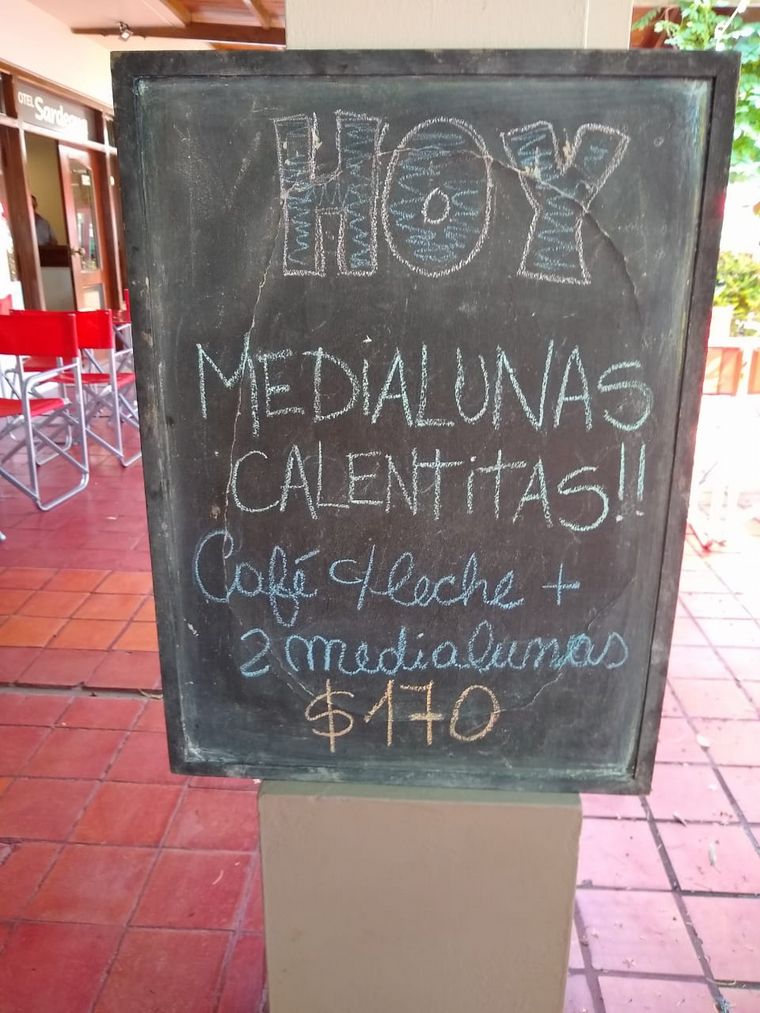 OTEL
Sardegna
HOY
MEDIALUNAS
CALENTITAS!!
Café c/leche +
2 medialunas
$170